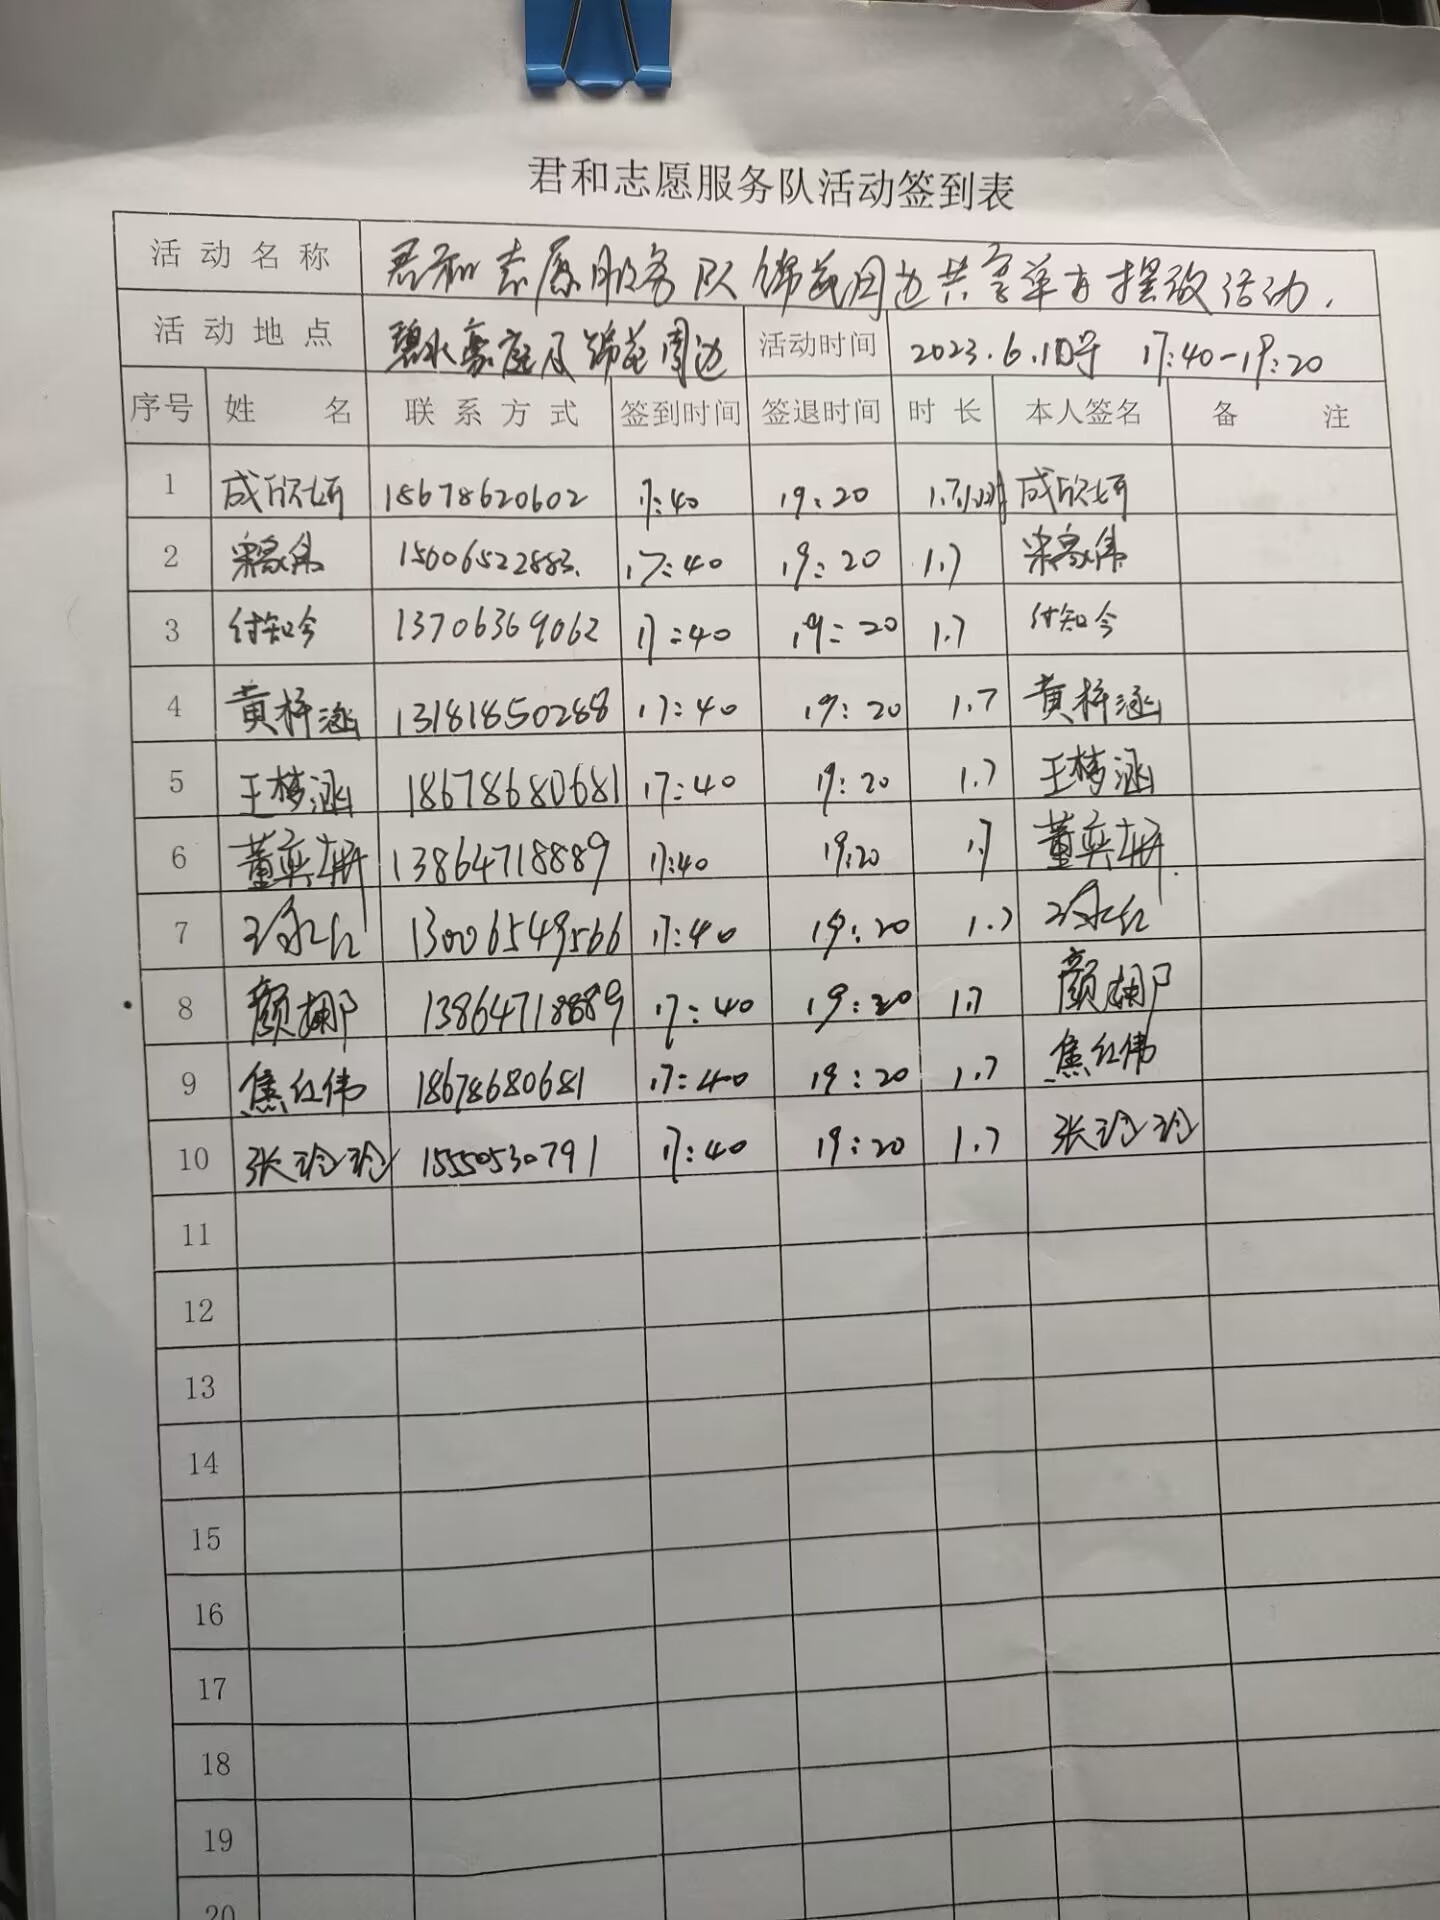 君和志愿服务队活动签到表
活动名称 君和志愿服务队锦苑周边共享单车摆放活动.
活动地点 碧水豪庭及锦苑周边 活动时间 2023.6.10号 17:40-19:20
序号 姓名 联系方式 签到时间 签退时间 时长 本人签名 备注
1 成欣妍 18678620602 17:40 19:20 1.7小时 成欣妍
2 宋家伟 15006522883. 17:40 19:20 1.7 宋家伟
3 付知今 13706369062 17:40 19:20 1.7 付知今
4 黄梓涵 13181850288 17:40 19:20 1.7 黄梓涵
5 王梦涵 18678680681 17:40 19:20 1.7 王梦涵
6 董奕妍 13864718889 17:40 19:20 1.7 董奕妍
7 13006549566 17:40 19:20 1.7
8 颜娜 13864718889 17:40 19:20 1.7 颜娜
9 焦红伟 18678680681 17:40 19:20 1.7 焦红伟
10 张玲玲 15550530791 17:40 19:20 1.7 张玲玲
11
12
13
14
15
16
17
18
19
20